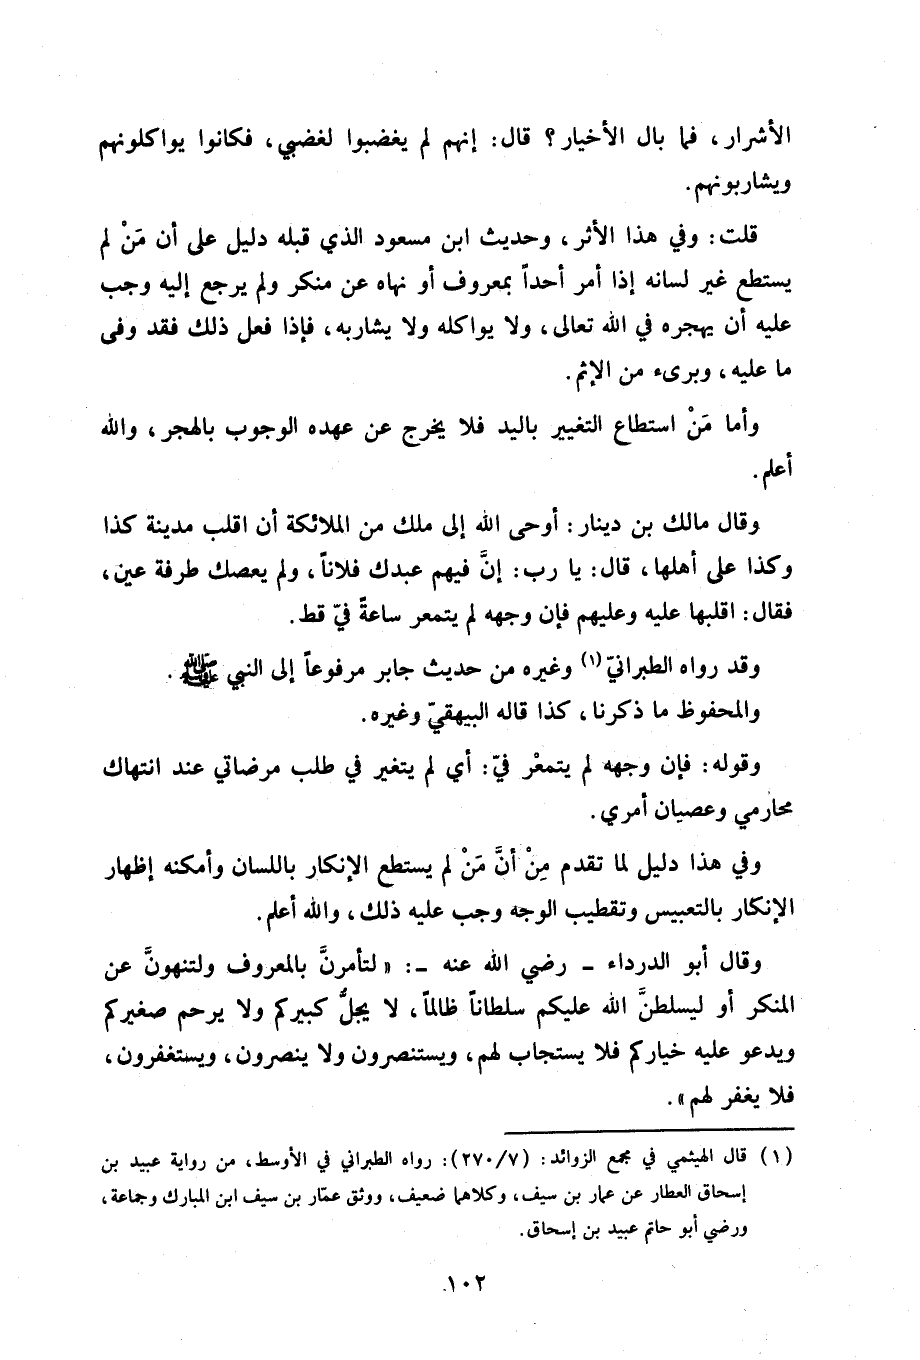 الأشرار، فما بال الأخيار؟ قال: إنهم لم يغضبوا لغضبي، فكانوا يواكلونهم
ويشاربونهم.
قلت: وفي هذا الأثر، وحديث ابن مسعود الذي قبله دليل على أن مَنْ لم
يستطع غير لسانه إذا أمر أحداً بمعروف أو نهاه عن منكر ولم يرجع إليه وجب
عليه أن يهجره في الله تعالى، ولا يواكله ولا يشاربه، فإذا فعل ذلك فقد وفى
ما عليه، وبرىء من الإثم.
وأما مَنْ استطاع التغيير باليد فلا يخرج عن عهده الوجوب بالهجر، والله
أعلم.
وقال مالك بن دينار: أوحى الله إلى ملك من الملائكة أن اقلب مدينة كذا
وكذا على أهلها، قال: يا رب: إنَّ فيهم عبدك فلاناً، ولم يعصك طرفة عين،
فقال: اقلبها عليه وعليهم فإن وجهه لم يتمعر ساعةً فيّ قط.
وقد رواه الطبرانيّ(١) وغيره من حديث جابر مرفوعاً إلى النبي ﷺ.
والمحفوظ ما ذكرنا، كذا قاله البيهقيّ وغيره.
وقوله: فإن وجهه لم يتمعْر فيّ: أي لم يتغير في طلب مرضاتي عند انتهاك
محارمي وعصيان أمري.
وفي هذا دليل لما تقدم مِنْ أنَّ مَنْ لم يستطع الإنكار باللسان وأمكنه إظهار
الإنكار بالتعبيس وتقطيب الوجه وجب عليه ذلك، والله أعلم.
وقال أبو الدرداء - رضي الله عنه -: «لتأمرنَّ بالمعروف ولتنهونَّ عن
المنكر أو ليسلطنَّ الله عليكم سلطاناً ظالماً، لا يجلُّ كبيركم ولا يرحم صغيركم
ويدعو عليه خياركم فلا يستجاب لهم، ويستنصرون ولا ينصرون، ويستغفرون،
فلا يغفر لهم».
(١) قال الهيثمي في مجمع الزوائد: (٢٧٠/٧): رواه الطبراني في الأوسط، من رواية عبيد بن
إسحاق العطار عن عمار بن سيف، وكلاهما ضعيف، ووثق عمّار بن سيف ابن المبارك وجماعة،
ورضي أبو حاتم عبيد بن إسحاق.
١٠٢